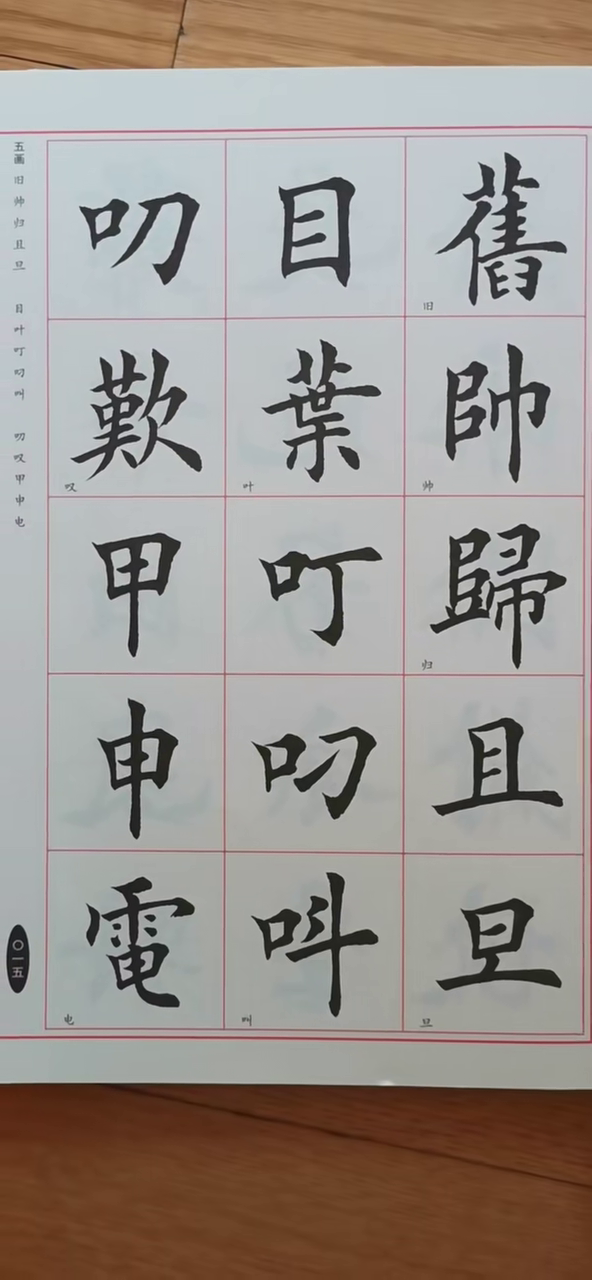 舊
旧
帥
帅
歸
归
且
旦
旦
目
葉
叶
叮
叼
呌
叫
叨
歎
叹
甲
申
電
电
五画 旧帅归且旦 目叶叮叼叫 叨叹甲申电
〇一五